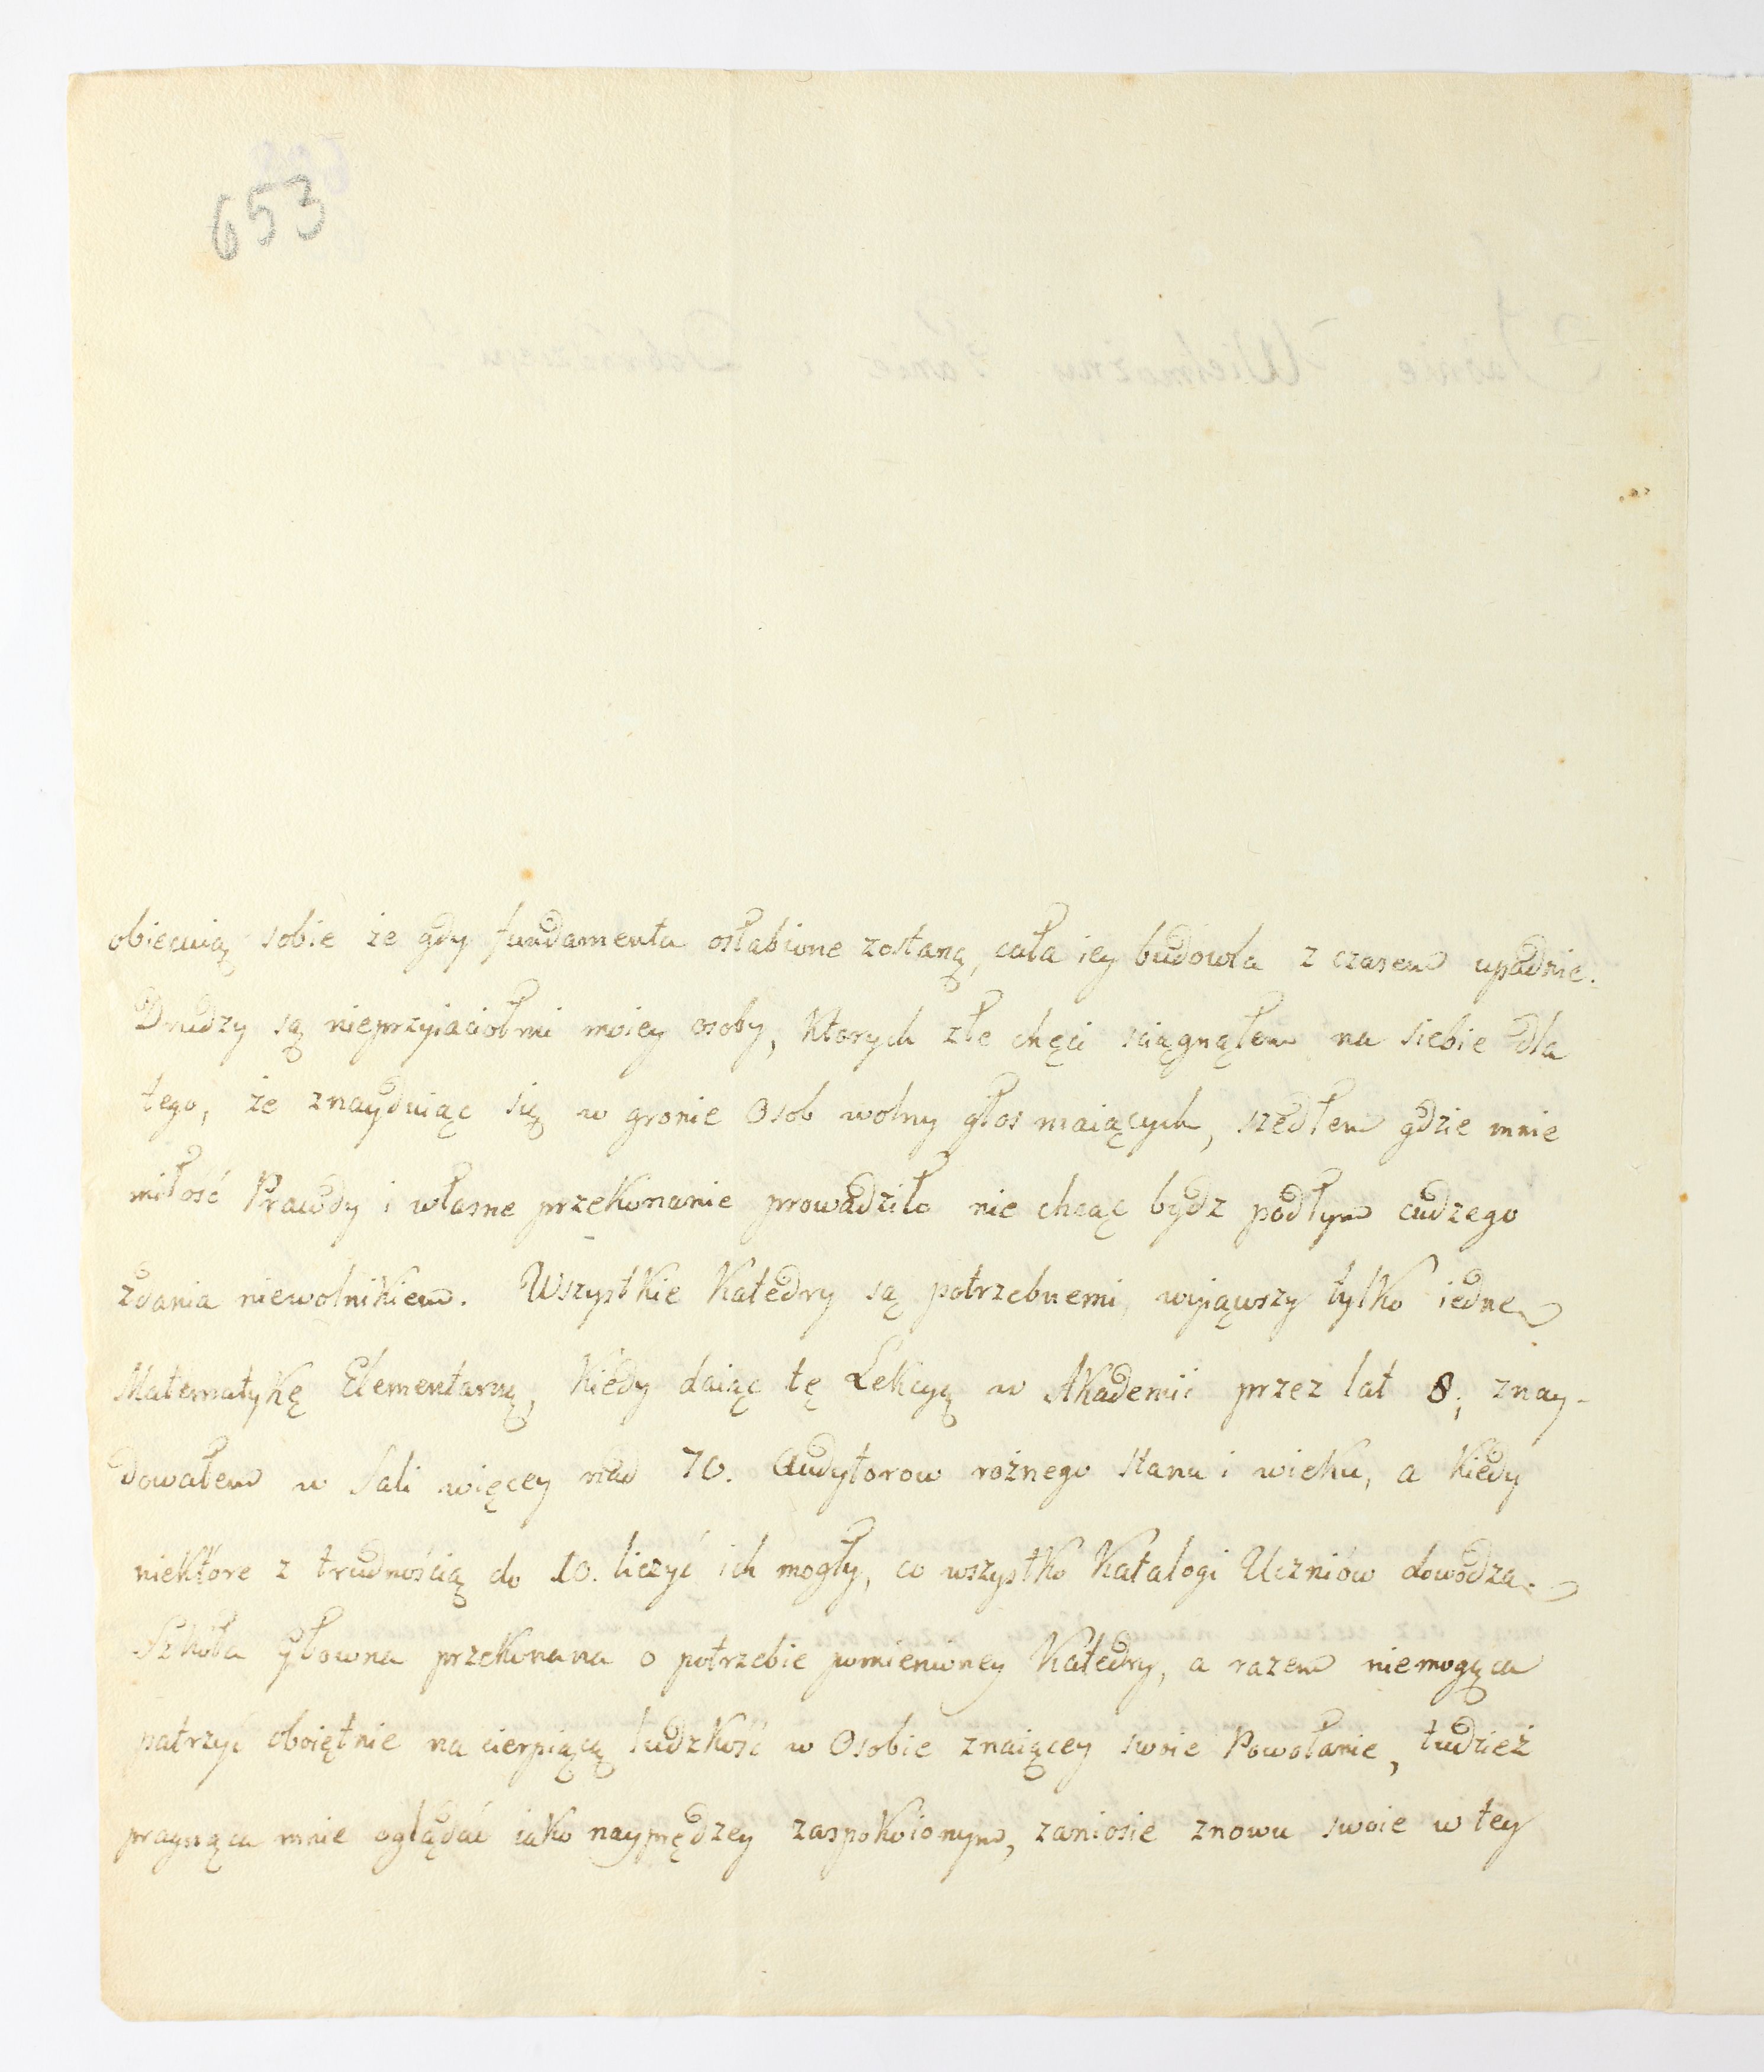 653
obiecuią sobie że gdy fundamenta osłabione zostaną, cała iey budowla z czasem upadnie.
Drudzy są nieprzyiaciołmi moiey osoby, ktorych złe chęci sciągnąłem na siebie dla
tego, że znayduiąc się w gronie Osob wolny głos maiących, szedłem gdzie mnie
miłość Prawdy i własne przekonanie prowadziło nie chcąc bydz podłym cudzego
zdania niewolnikiem. Wszystkie Katedry są potrzebnemi, wyiąwszy tylko iedne
Matematykę Elementarną, kiedy daiąc tę Lekcyą w Akademii przez lat 8, znay-
dowałem w Sali więcey nad 70. Audytorow rożnego stanu i wieku, a kiedy
niektore z trudnością do 10. liczyć ich mogły, co wszystko Katalogi Uczniów dowodzą.
Szkoła Głowna przekonana o potrzebie pomienioney Katedry, a razem niemogąca
patrzyć oboiętnie na cierpiącą ludzkość w Osobie znaiącey swoie Powołanie, tudzież
pragnąca mnie oglądać iako nayprędzey zaspokoionym, zaniosie znowu swoie w tey